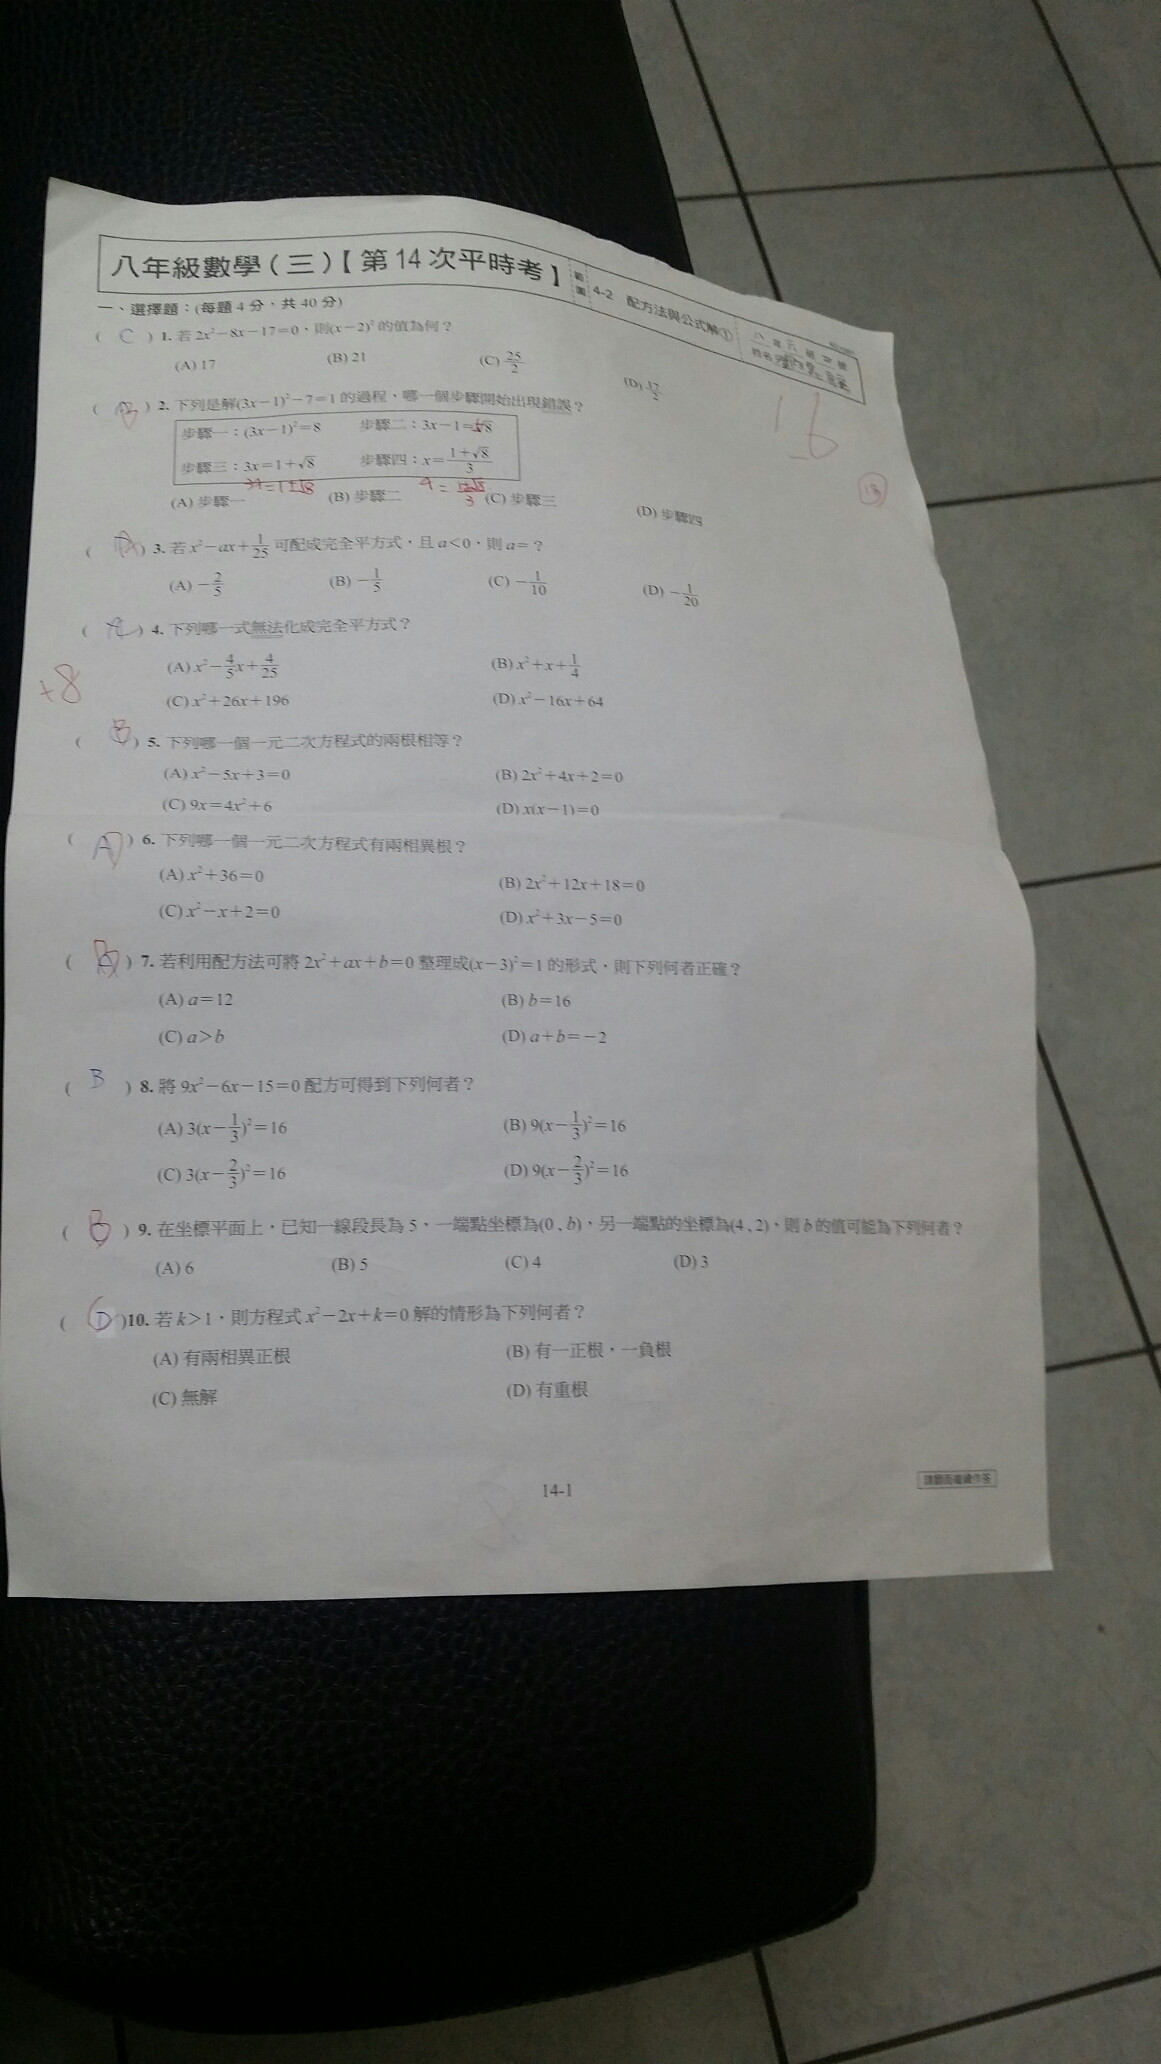 八年級數學(三)【第14次平時考】
範圍 4-2 配方法與公式解①
16
一、選擇題:(每題4分,共40分)
( C ) 1. 若 2x²−8x−17=0,則(x−2)² 的值為何?
(A) 17 (B) 21 (C) 25/2 (D) 17/2
( B ) 2. 下列是解(3x−1)²−7=1 的過程,哪一個步驟開始出現錯誤?
步驟一:(3x−1)²=8 步驟二:3x−1=√8
步驟三:3x=1+√8 步驟四:x=(1+√8)/3
(A) 步驟一 (B) 步驟二 (C) 步驟三 (D) 步驟四
( ) 3. 若 x²−ax+1/25 可配成完全平方式,且 a<0,則 a=?
(A) −2/5 (B) −1/5 (C) −1/10 (D) −1/20
( ) 4. 下列哪一式無法化成完全平方式?
(A) x²−4/5x+4/25 (B) x²+x+1/4
+8
(C) x²+26x+196 (D) x²−16x+64
( B ) 5. 下列哪一個一元二次方程式的兩根相等?
(A) x²−5x+3=0 (B) 2x²+4x+2=0
(C) 9x=4x²+6 (D) x(x−1)=0
( A ) 6. 下列哪一個一元二次方程式有兩相異根?
(A) x²+36=0 (B) 2x²+12x+18=0
(C) x²−x+2=0 (D) x²+3x−5=0
( B ) 7. 若利用配方法可將 2x²+ax+b=0 整理成(x−3)²=1 的形式,則下列何者正確?
(A) a=12 (B) b=16
(C) a>b (D) a+b=−2
( B ) 8. 將 9x²−6x−15=0 配方可得到下列何者?
(A) 3(x−1/3)²=16 (B) 9(x−1/3)²=16
(C) 3(x−2/3)²=16 (D) 9(x−2/3)²=16
( B ) 9. 在坐標平面上,已知一線段長為 5,一端點坐標為(0 , b),另一端點的坐標為(4 , 2),則 b 的值可能為下列何者?
(A) 6 (B) 5 (C) 4 (D) 3
( D )10. 若 k>1,則方程式 x²−2x+k=0 解的情形為下列何者?
(A) 有兩相異正根 (B) 有一正根,一負根
(C) 無解 (D) 有重根
14-1
請翻面繼續作答